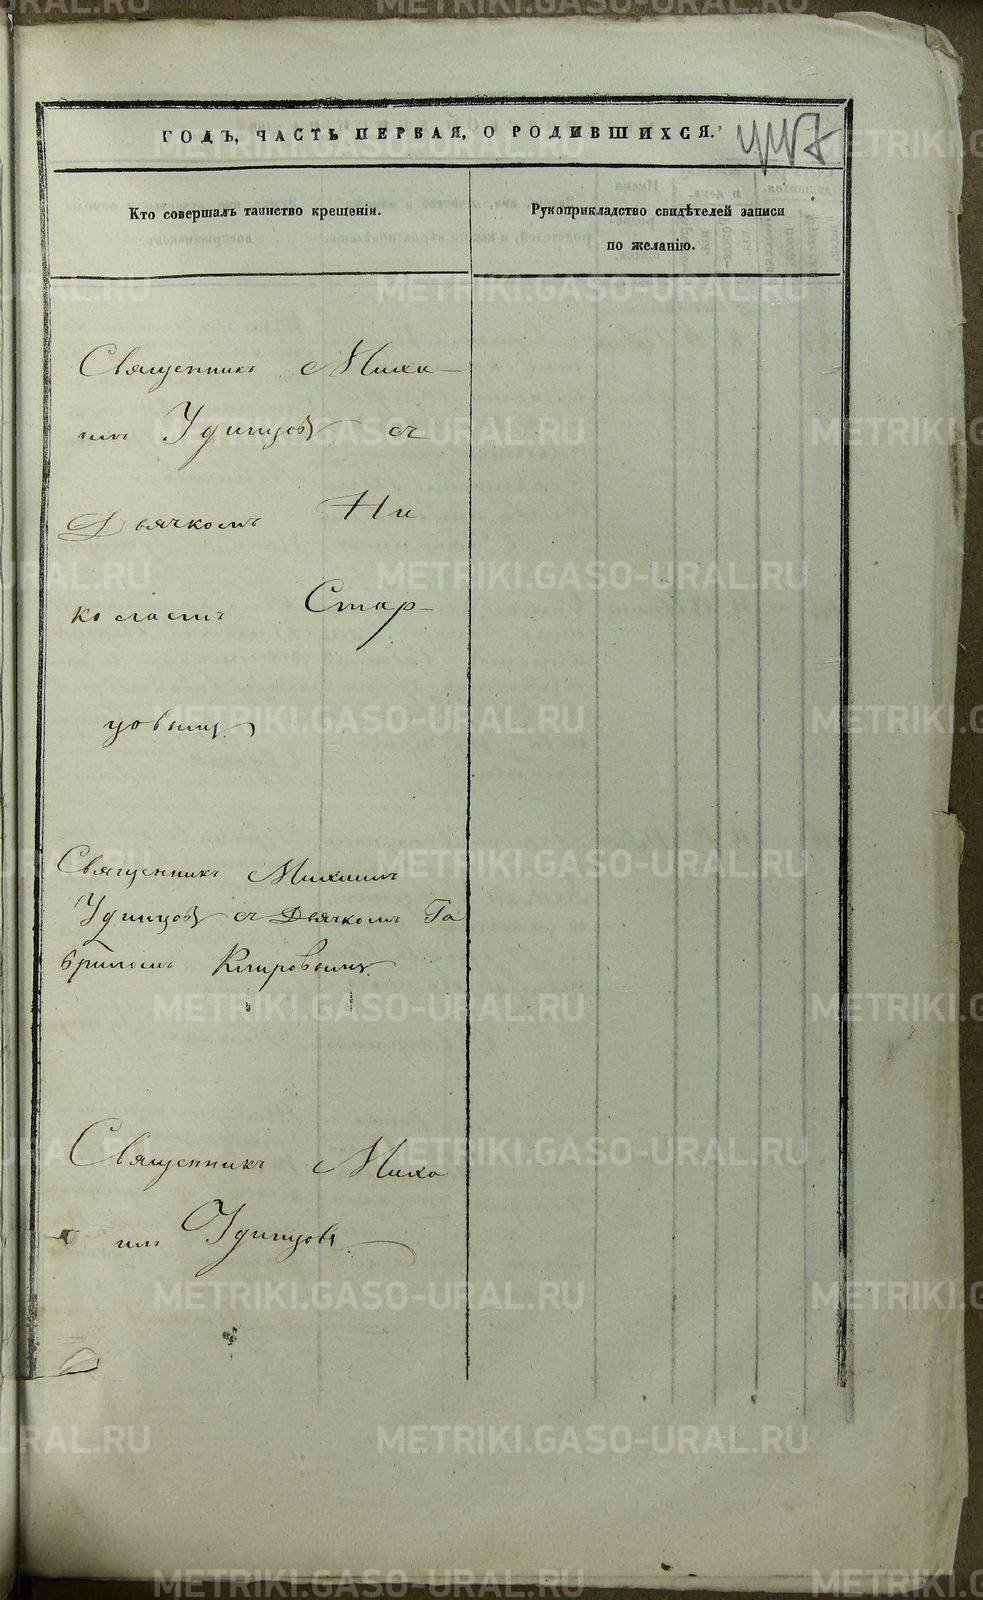 ГОДЪ, ЧАСТЬ ПЕРВАЯ, О РОДИВШИХСЯ.
Кто совершалъ таинство крещенія.
Рукоприкладство свидѣтелей записи
по желанію.
Священникъ Миха-
илъ Удинцовъ съ
Дьячкомъ Ни
колаемъ Стар-
цовымъ.
Священникъ Михаилъ
Удинцовъ съ Дьячкомъ Га
вриломъ Кпировымъ.
Священникъ Миха
илъ Удинцовъ.
METRIKI.GASO-URAL.RU